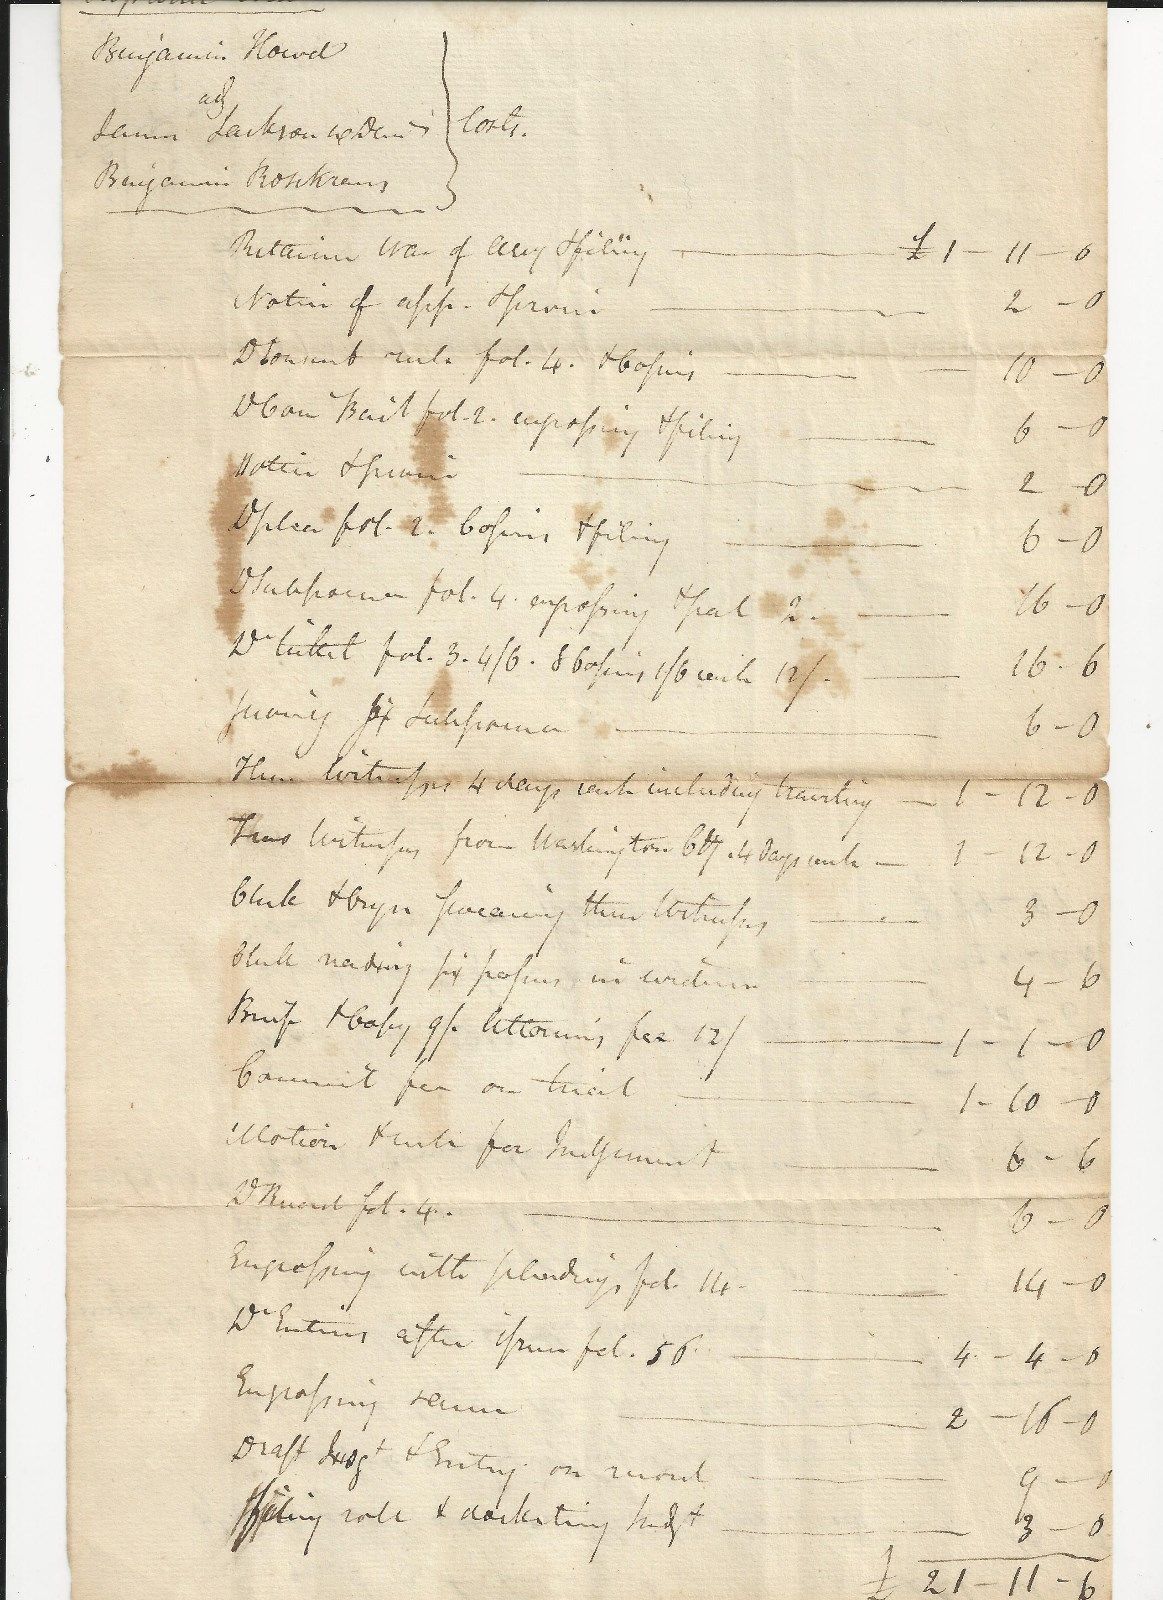 Supreme Court
Benjamin Howd
ads
James Jackson ex Dem
Benjamin Rosekrans
Costs.
Retainer War of Atty & filing £ 1 - 11 - 0
Notice of app. & service 2 - 0
D Consent rule fol. 4. & Copies 10 - 0
D Com Bail fol. 2. engrossing & filing 6 - 0
Notice & service 2 - 0
D plea fol. 2. Copies & filing 6 - 0
D Subpoena fol. 4. engrossing & seal 2. 16 - 0
Dr ticket fol. 3. 4/6. 8 Copies 1/6 each 12/. 16 - 6
serving six Subpoena 6 - 0
Three Witnesses 4 days each including traveling 1 - 12 - 0
Two Witnesses from Washington Cty 4 days each 1 - 12 - 0
Clerk & Cryer swearing three Witnesses 3 - 0
Clerk reading six papers in evidence 4 - 6
Brief & Copy 9/. Attornies fee 12/ 1 - 1 - 0
Council fee on trial 1 - 10 - 0
Motion & rule for Judgement 6 - 6
D Record fol. 4. 6 - 0
Engrossing with pleadings fol. 14. 14 - 0
Dr Entries after issue fol. 56. 4 - 4 - 0
Engrossing same 2 - 16 - 0
Draft Judgt & Entry on record 9 - 0
filing role & docketing Judgt 3 - 0
£ 21 - 11 - 6